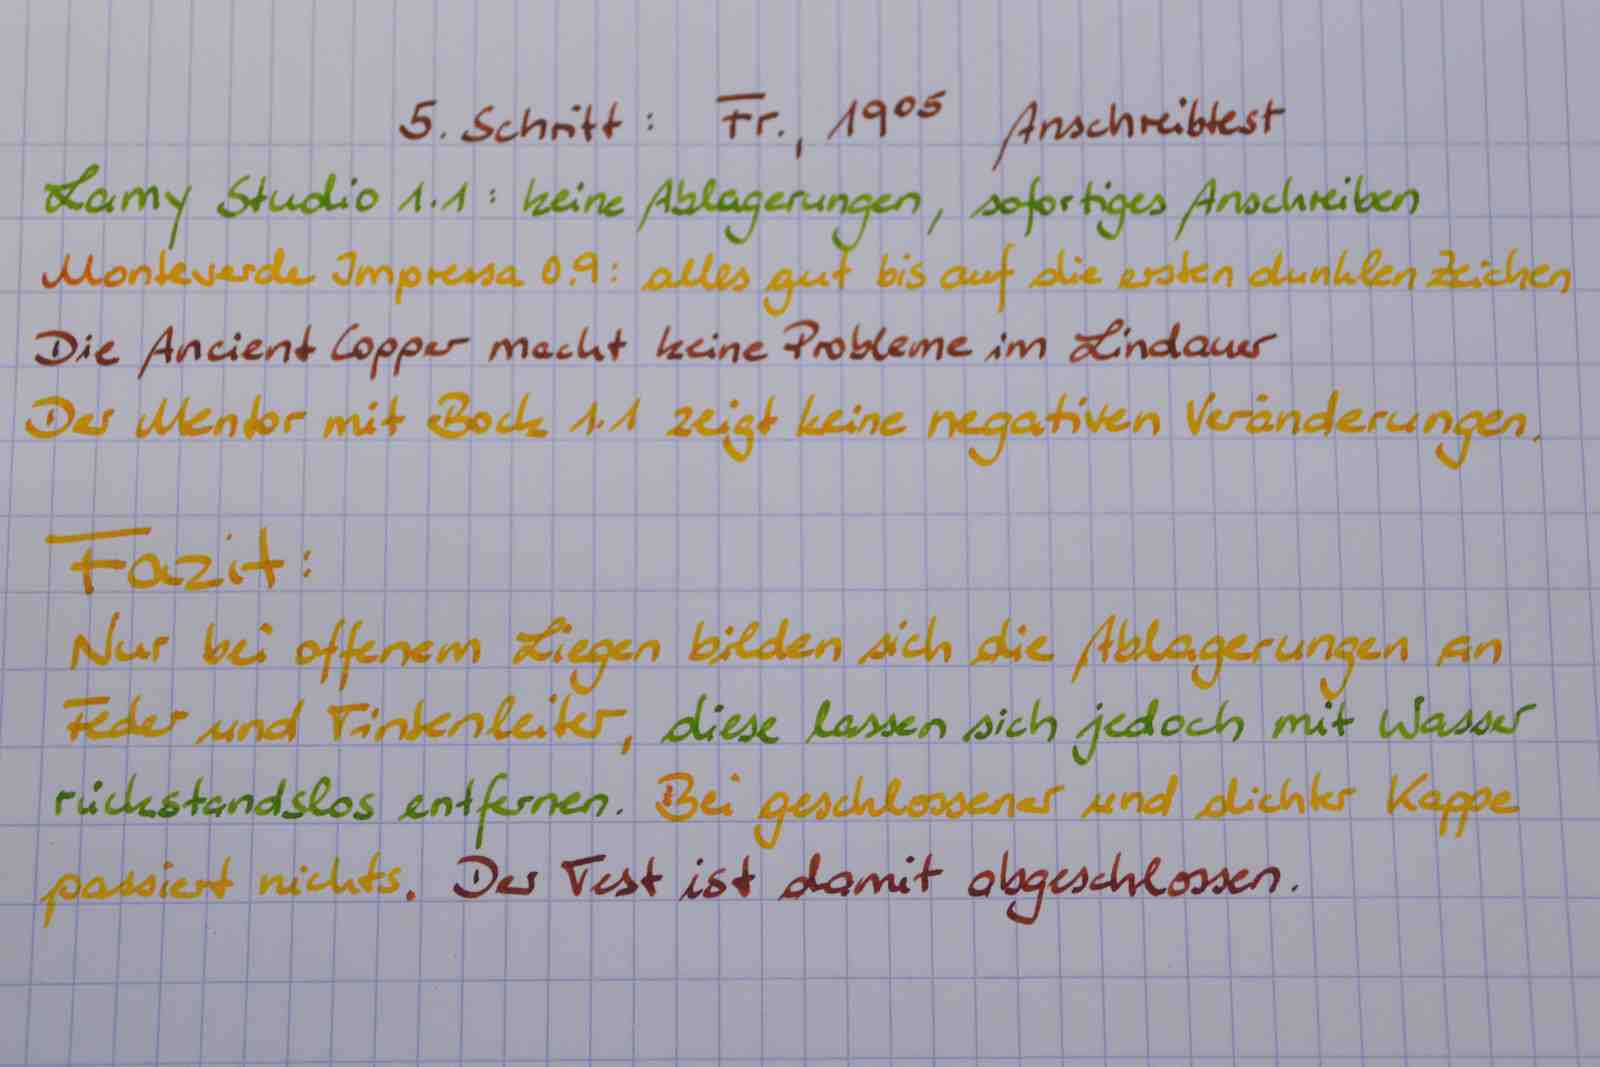 5. Schritt: Fr., 19⁰⁵ Anschreibtest
Lamy Studio 1.1: keine Ablagerungen, sofortiges Anschreiben
Monteverde Impressa 0.9: alles gut bis auf die ersten dunklen Zeichen
Die Ancient Copper macht keine Probleme im Lindauer
Der Mentor mit Bock 1.1 zeigt keine negativen Veränderungen.
Fazit:
Nur bei offenem Liegen bilden sich die Ablagerungen an
Feder und Tintenleiter, diese lassen sich jedoch mit Wasser
rückstandslos entfernen. Bei geschlossener und dichter Kappe
passiert nichts. Der Test ist damit abgeschlossen.